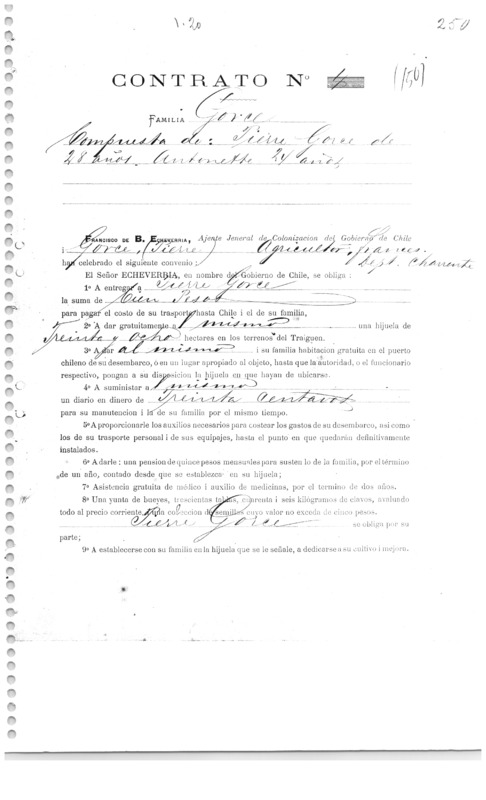 1.20
250
CONTRATO Nº 4
(150)
FAMILIA Gorce
Compuesta de: Pierre Gorce de
28 años. Antonette 24 años
FRANCISCO DE B. ECHEVERRIA, Ajente Jeneral de Colonizacion del Gobierno de Chile
i Gorce, (Pierre) Agricultor, frances.
han celebrado el siguiente convenio: Dept. Charente
El Señor ECHEVERRIA, en nombre del Gobierno de Chile, se obliga:
1º A entregar a Pierre Gorce
la suma de Cien Pesos
para pagar el costo de su trasporte hasta Chile i el de su familia,
2º A dar gratuitamente a l mismo una hijuela de
Treinta y ocho hectares en los terrenos del Traiguen.
3º A dar al mismo i su familia habitacion gratuita en el puerto
chileno de su desembarco, o en un lugar apropiado al objeto, hasta que la autoridad, o el funcionario
respectivo, pongan a su disposicion la hijuela en que hayan de ubicarse.
4º A suministrar a l mismo
un diario en dinero de Treinta centavos
para su manutencion i la de su familia por el mismo tiempo.
5º A proporcionarle los auxilios necesarios para costear los gastos de su desembarco, asi como
los de su trasporte personal i de sus equipajes, hasta el punto en que quedarán definitivamente
instalados.
6º A darle: una pension de quince pesos mensuales para susten lo de la familia, por el término
de un año, contado desde que se establezca en su hijuela;
7º Asistencia gratuita de médico i auxilio de medicinas, por el termino de dos años.
8º Una yunta de bueyes, trescientas tablas, cuarenta i seis kilógramos de clavos, avaluando
todo al precio corriente, i una coleccion de semillas cuyo valor no exceda de cinco pesos.
Pierre Gorce se obliga por su
parte;
9º A establecerse con su familia en la hijuela que se le señale, a dedicarse a su cultivo i mejora.